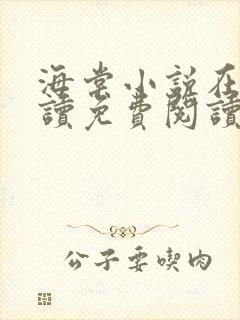 海棠小說在
讀免費閱讀
公子要喫肉